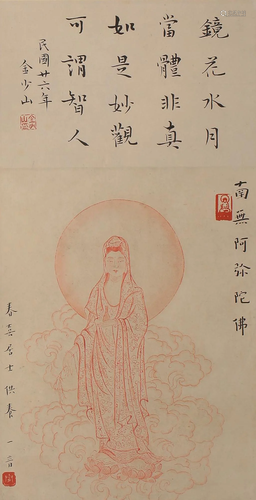 鏡花水月
當體非真
如是妙觀
可謂智人
民國廿六年
金少山
南無阿弥陀佛
春喜居士供養
一音